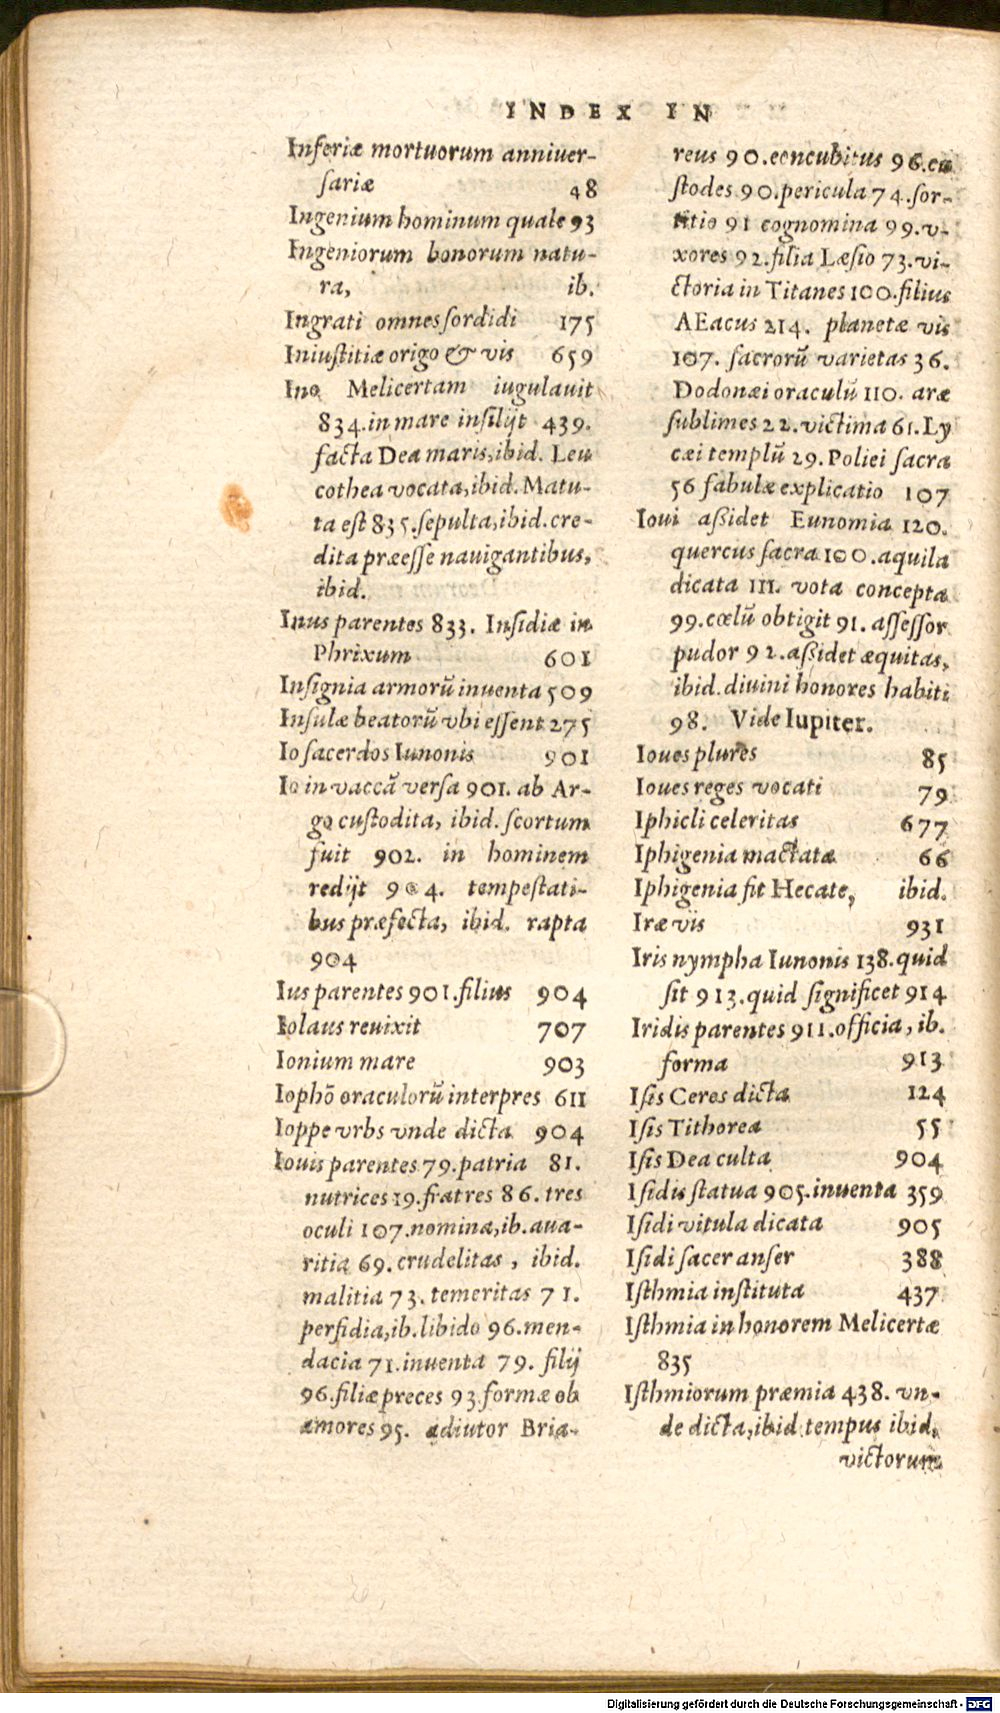 INDEX IN
Inferiæ mortuorum anniuer-
sariæ 48
Ingenium hominum quale 93
Ingeniorum bonorum natu-
ra, ib.
Ingrati omnes sordidi 175
Iniustitiæ origo & vis 659
Ino Melicertam iugulauit
834.in mare insilijt 439.
facta Dea maris,ibid. Leu
cothea vocata,ibid. Matu-
ta est 835.sepulta,ibid.cre-
dita præesse nauigantibus,
ibid.
Inus parentes 833. Insidiæ in
Phrixum 601
Insignia armorũ inuenta 509
Insulæ beatorũ vbi essent 275
Io sacerdos Iunonis 901
Io in vaccã versa 901. ab Ar-
go custodita, ibid. scortum
fuit 902. in hominem
redijt 904. tempestati-
bus præfecta, ibid. rapta
904
Ius parentes 901.filius 904
Iolaus reuixit 707
Ionium mare 903
Iophõ oraculorũ interpres 611
Ioppe vrbs vnde dicta 904
Iouis parentes 79.patria 81.
nutrices 19.fratres 86. tres
oculi 107.nomina,ib.aua-
ritia 69.crudelitas, ibid.
malitia 73. temeritas 71.
perfidia,ib.libido 96.men-
dacia 71.inuenta 79. filij
96.filiæ preces 93.formæ ob
amores 95. adiutor Bria-
reus 90.concubitus 96.cu
stodes 90.pericula 74.sor-
titio 91 cognomina 99.v-
xores 92.filia Læsio 73.vi-
ctoria in Titanes 100.filius
AEacus 214. planetæ vis
107. sacrorũ varietas 36.
Dodonæi oraculũ 110. aræ
sublimes 22.victima 61.Ly
cæi templũ 29.Poliei sacra
56 fabulæ explicatio 107
Ioui aßidet Eunomia 120.
quercus sacra 100.aquila
dicata 111. vota concepta
99.cœlũ obtigit 91. assessor
pudor 92.aßidet æquitas,
ibid.diuini honores habiti
98. Vide Iupiter.
Ioues plures 85
Ioues reges vocati 79
Iphicli celeritas 677
Iphigenia mactata 66
Iphigenia fit Hecate, ibid.
Iræ vis 931
Iris nympha Iunonis 138.quid
sit 913.quid significet 914
Iridis parentes 911.officia, ib.
forma 913
Isis Ceres dicta 124
Isis Tithorea 55
Isis Dea culta 904
Isidis statua 905.inuenta 359
Isidi vitula dicata 905
Isidi sacer anser 388
Isthmia instituta 437
Isthmia in honorem Melicertæ
835
Isthmiorum præmia 438. vn-
de dicta,ibid tempus ibid.
victorum
Digitalisierung gefördert durch die Deutsche Forschungsgemeinschaft - DFG